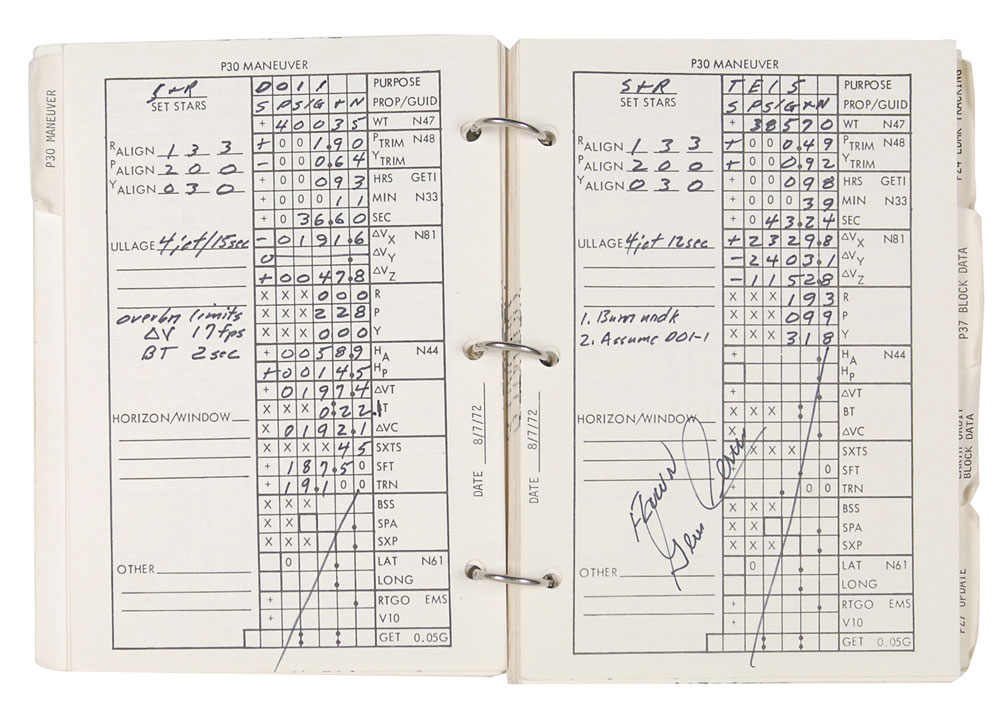 P30 MANEUVER
P30 MANEUVER
S+R
SET STARS
D O I 1 PURPOSE
S P S / G + N PROP/GUID
+ 4 0 0 3 5 WT N47
R ALIGN 1 3 3
+ 0 0 1.9 0 P TRIM N48
P ALIGN 2 0 0
- 0 0 0.6 4 Y TRIM
Y ALIGN 0 3 0
+ 0 0 0 9 3 HRS GETI
+ 0 0 0 1 1 MIN N33
+ 0 3 6.6 0 SEC
ULLAGE 4 jet/15sec
- 0 1 9 1.6 ΔVX N81
0 ΔVY
+ 0 0 4 7.8 ΔVZ
X X X 0 0 0 R
overbn limits
X X X 2 2 8 P
ΔV 17 fps
X X X 0 0 0 Y
BT 2 sec
+ 0 0 5 8.9 HA N44
+ 0 0 1 4.5 HP
+ 0 1 9 7.4 ΔVT
X X X 0:2 2 BT
HORIZON/WINDOW
X 0 1 9 2.1 ΔVC
X X X X 4 5 SXTS
+ 1 8 7.5 0 SFT
+ 1 9.1 0 0 TRN
X X X BSS
X X SPA
X X X SXP
OTHER
0 LAT N61
LONG
+ RTGO EMS
+ V10
GET 0.05G
DATE 8/7/72
P30 MANEUVER
S+R
SET STARS
T E I 5 PURPOSE
S P S / G + N PROP/GUID
+ 3 8 5 7 0 WT N47
R ALIGN 1 3 3
+ 0 0 0.4 9 P TRIM N48
P ALIGN 2 0 0
+ 0 0 0.9 2 Y TRIM
Y ALIGN 0 3 0
+ 0 0 0 9 8 HRS GETI
+ 0 0 0 3 9 MIN N33
+ 0 4 3.2 4 SEC
ULLAGE 4 jet 12sec
+ 2 3 2 9.8 ΔVX N81
- 2 4 0 3.1 ΔVY
- 1 1 5 2.8 ΔVZ
X X X 1 9 3 R
1. Burn undk
X X X 0 9 9 P
2. Assume DOI-1
X X X 3 1 8 Y
+ HA N44
HP
+ ΔVT
X X X BT
HORIZON/WINDOW
X ΔVC
X X X X SXTS
+ 0 SFT
+ 0 0 TRN
Flown
Gene Cernan
X X X BSS
X X SPA
X X X SXP
OTHER
0 LAT N61
LONG
+ RTGO EMS
+ V10
GET 0.05G
DATE 8/7/72
P24 LDMK TRACKING
P37 BLOCK DATA
EARTH ORBIT
BLOCK DATA
P27 UPDATE